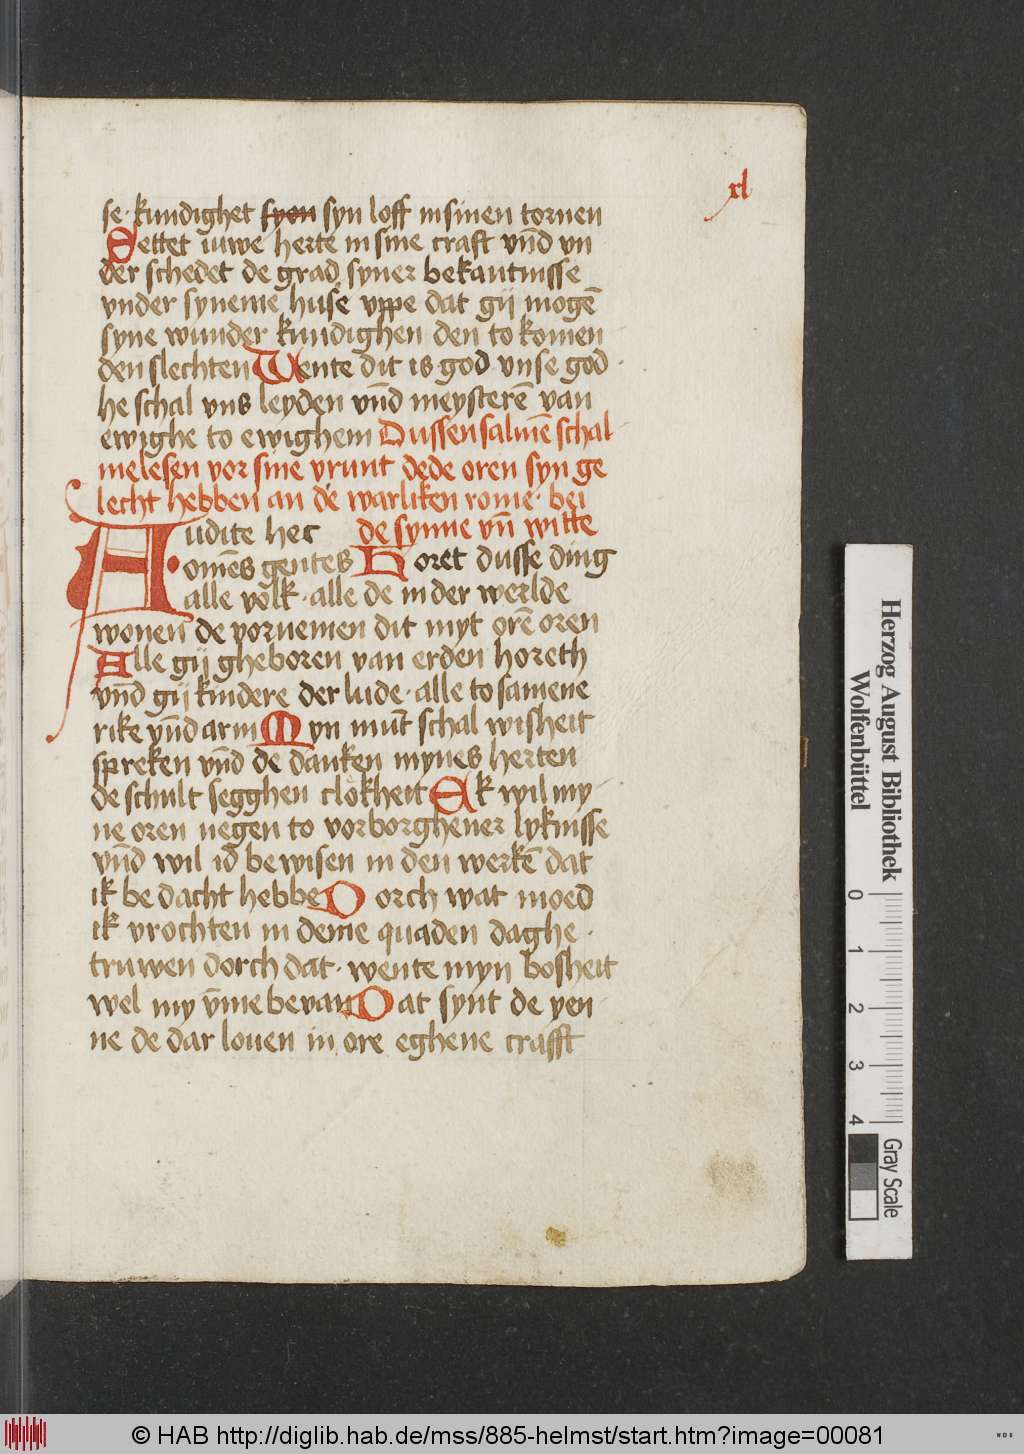 xl
se· kundighet syen syn loff in sinen tornen
Settet iuwe herte in sine craft vn̄d vn
der schedet de grad syner bekantnisse
vnder syneme huse vppe dat gij mogē
syne wunder kundighen den to komen
den slechten Wente dit is god vnse god·
he schal vns leyden vn̄d meysterē van
ewighe to ewighem Dussen salmē schal
me lesen vor sine vrunt dede oren syn ge
lecht hebben an de warliken rome· bei
Audite hec de synne vn̄ witte
omēs gentes Horet dusse ding
alle volk· alle de in der werlde
wonen de vornemen dit myt orē oren
Alle gij gheboren van erden horeth
vn̄d gij kindere der lude· alle to samene
rike vn̄d arm Myn mūt schal wisheit
spreken vn̄d de danken mynes herten
de schult segghen clokheit Ek wil my
ne oren negen to vorborghener lyknisse
vn̄d wil id be wisen in den werkē dat
ik be dacht hebbe Dorch wat moed
ik vrochten in deme quaden daghe·
truwen dorch dat· wente myn bosheit
wel my v̄me bevan Dat synt de yen
ne de dar loven in ore eghene crafft
Herzog August Bibliothek
Wolfenbüttel
0 1 2 3 4
Gray Scale
© HAB http://diglib.hab.de/mss/885-helmst/start.htm?image=00081